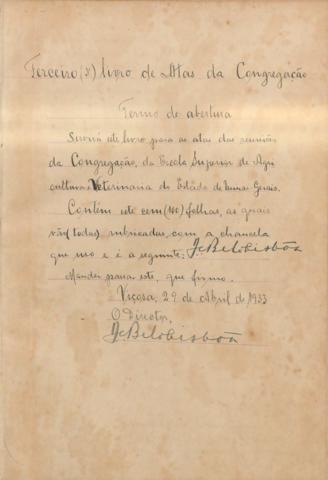 Terceiro (3º) livro de Atas da Congregação
Termo de abertura
Servirá este livro para as atas das reuniões
da Congregação, da Escola Superior de Agri
cultura e Veterinaria do Estado de Minas Gerais.
Contém este cem (100) folhas, as quais
vão (todas) rubricadas com a chancela
que uso e é a seguinte: JcBelloLisbôa
Mandei passar este, que firmo.
Viçosa, 29 de Abril de 1933
O Director,
JcBelloLisbôa